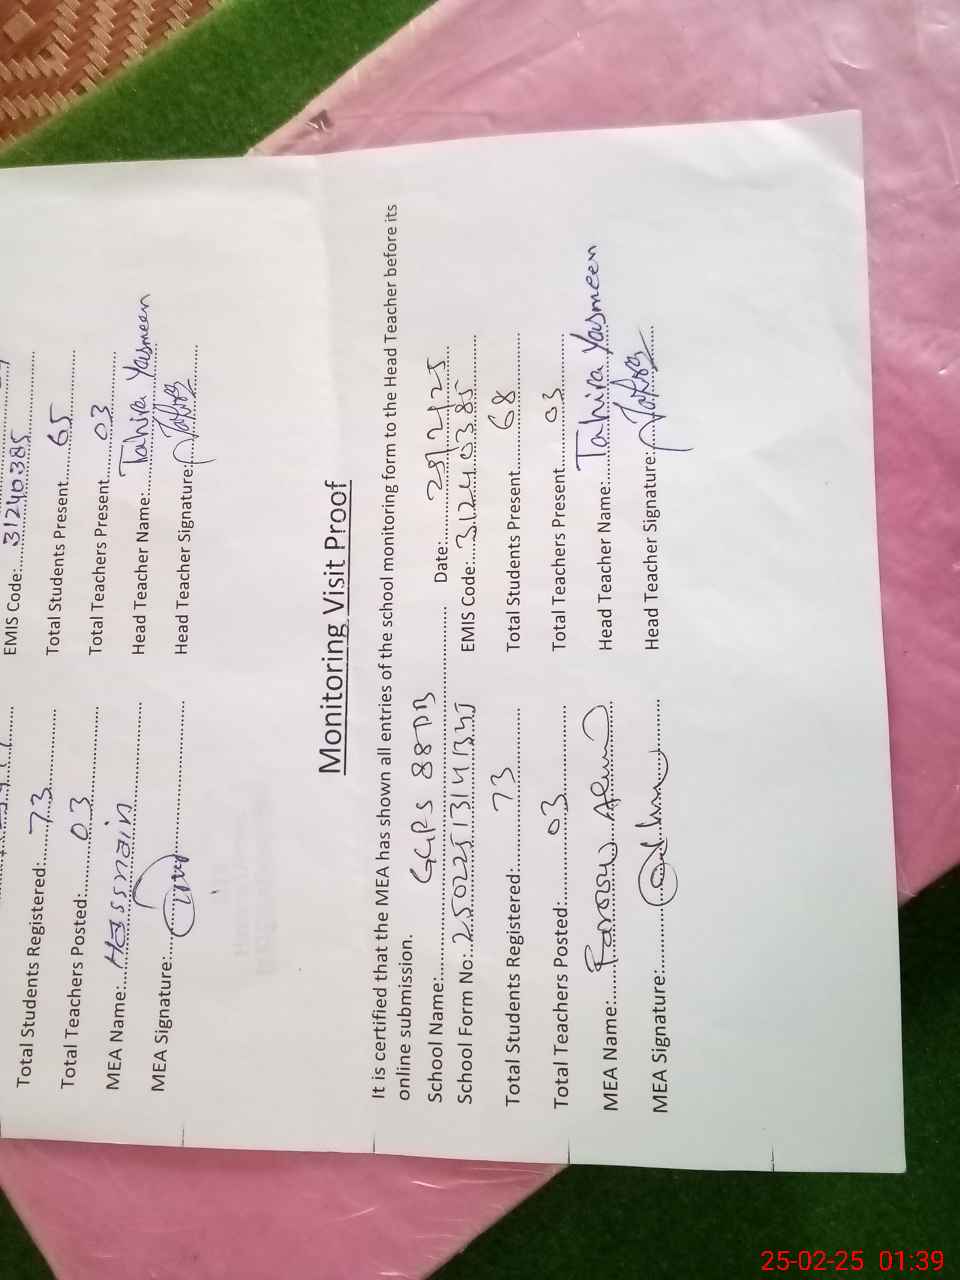 EMIS Code:31240385
Total Students Registered:73 Total Students Present65
Total Teachers Posted:03 Total Teachers Present03
MEA Name:Hassnain Head Teacher Name:Tahira Yasmeen
MEA Signature: Head Teacher Signature:
Monitoring Visit Proof
It is certified that the MEA has shown all entries of the school monitoring form to the Head Teacher before its
online submission.
School Name: GGPS 88DB Date: 25/2/25
School Form No: EMIS Code: 31240385
Total Students Registered: 73 Total Students Present 68
Total Teachers Posted: 03 Total Teachers Present 03
MEA Name: Head Teacher Name: Tahira Yasmeen
MEA Signature: Head Teacher Signature:
25-02-25 01:39